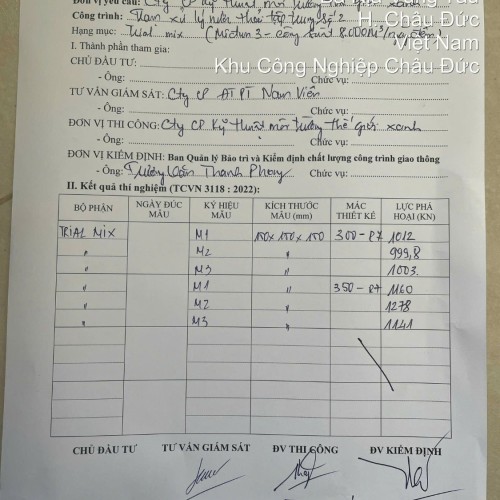 Đơn vị yêu cầu: Cty CP kỹ thuật môi trường thế giới xanh
Công trình: Trạm xử lý nước thải tập trung số 2
Hạng mục: Trial mix (Modun 3 - công suất 8.000M³/ngày đêm)
H. Châu Đức
Việt Nam
Khu Công Nghiệp Châu Đức
I. Thành phần tham gia:
CHỦ ĐẦU TƯ:
- Ông: Chức vụ:
TƯ VẤN GIÁM SÁT: Cty CP ĐT PT Nam Viên
- Ông: Chức vụ:
ĐƠN VỊ THI CÔNG: Cty CP Kỹ thuật môi trường thế giới xanh
- Ông: Chức vụ:
ĐƠN VỊ KIỂM ĐỊNH: Ban Quản lý Bảo trì và Kiểm định chất lượng công trình giao thông
- Ông: Trương Văn Thanh Phong Chức vụ:
II. Kết quả thí nghiệm (TCVN 3118 : 2022):
BỘ PHẬN NGÀY ĐÚC MẪU KÝ HIỆU MẪU KÍCH THƯỚC MẪU (mm) MÁC THIẾT KẾ LỰC PHÁ HOẠI (KN)
TRIAL MIX M1 150x150x150 300-R7 1012
" M2 " 999,8
" M3 " 1003
" M1 " 350-R7 1160
" M2 " 1278
" M3 " 1141
CHỦ ĐẦU TƯ TƯ VẤN GIÁM SÁT ĐV THI CÔNG ĐV KIỂM ĐỊNH